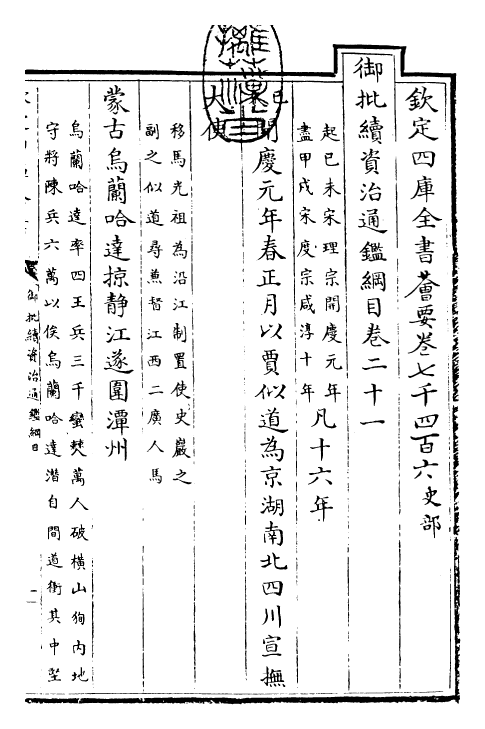 欽定四庫全書薈要卷七千四百六史部
御批續資治通鑑綱目卷二十一
起己未宋理宗開慶元年
盡甲戌宋度宗咸淳十年
凡十六年
開慶元年春正月以賈似道為京湖南北四川宣撫
大使
移馬光祖為沿江制置使史巖之
副之似道尋兼督江西二廣人馬
蒙古烏蘭哈達掠靜江遂圍潭州
烏蘭哈達率四王兵三千蠻僰萬人破橫山徇內地
守將陳兵六萬以俟烏蘭哈達潛自間道衝其中堅
御批續資治通鑑綱目
一